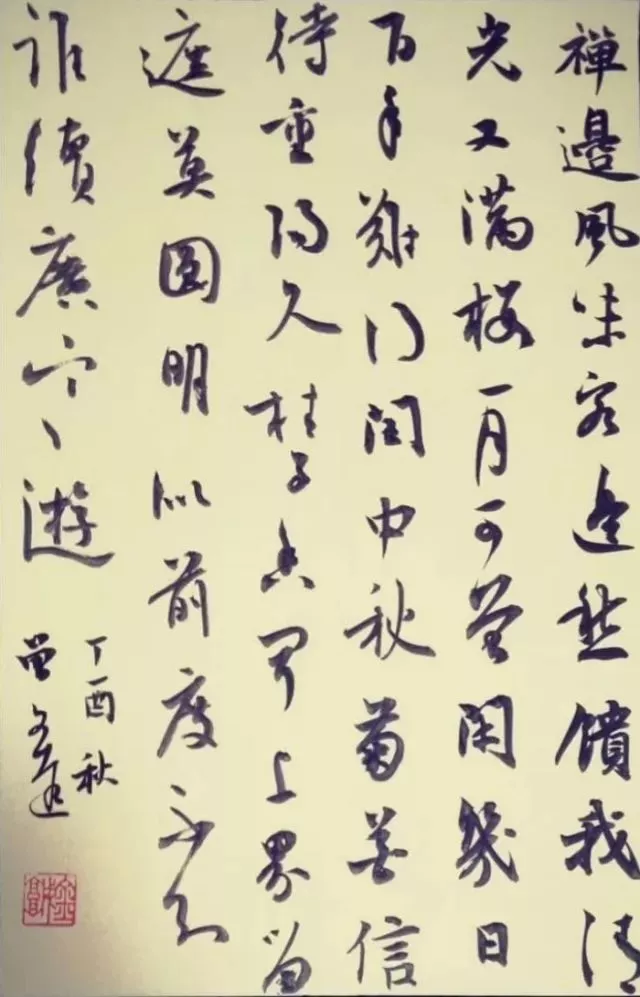 禪邊風味客邊愁饋我清
光又滿樓一月可曾閑幾日
百年難得閏中秋菊花信
待重陽久桂子香聞上界留
遮莫圓明似前度不知
誰續廣寒遊
丁酉秋